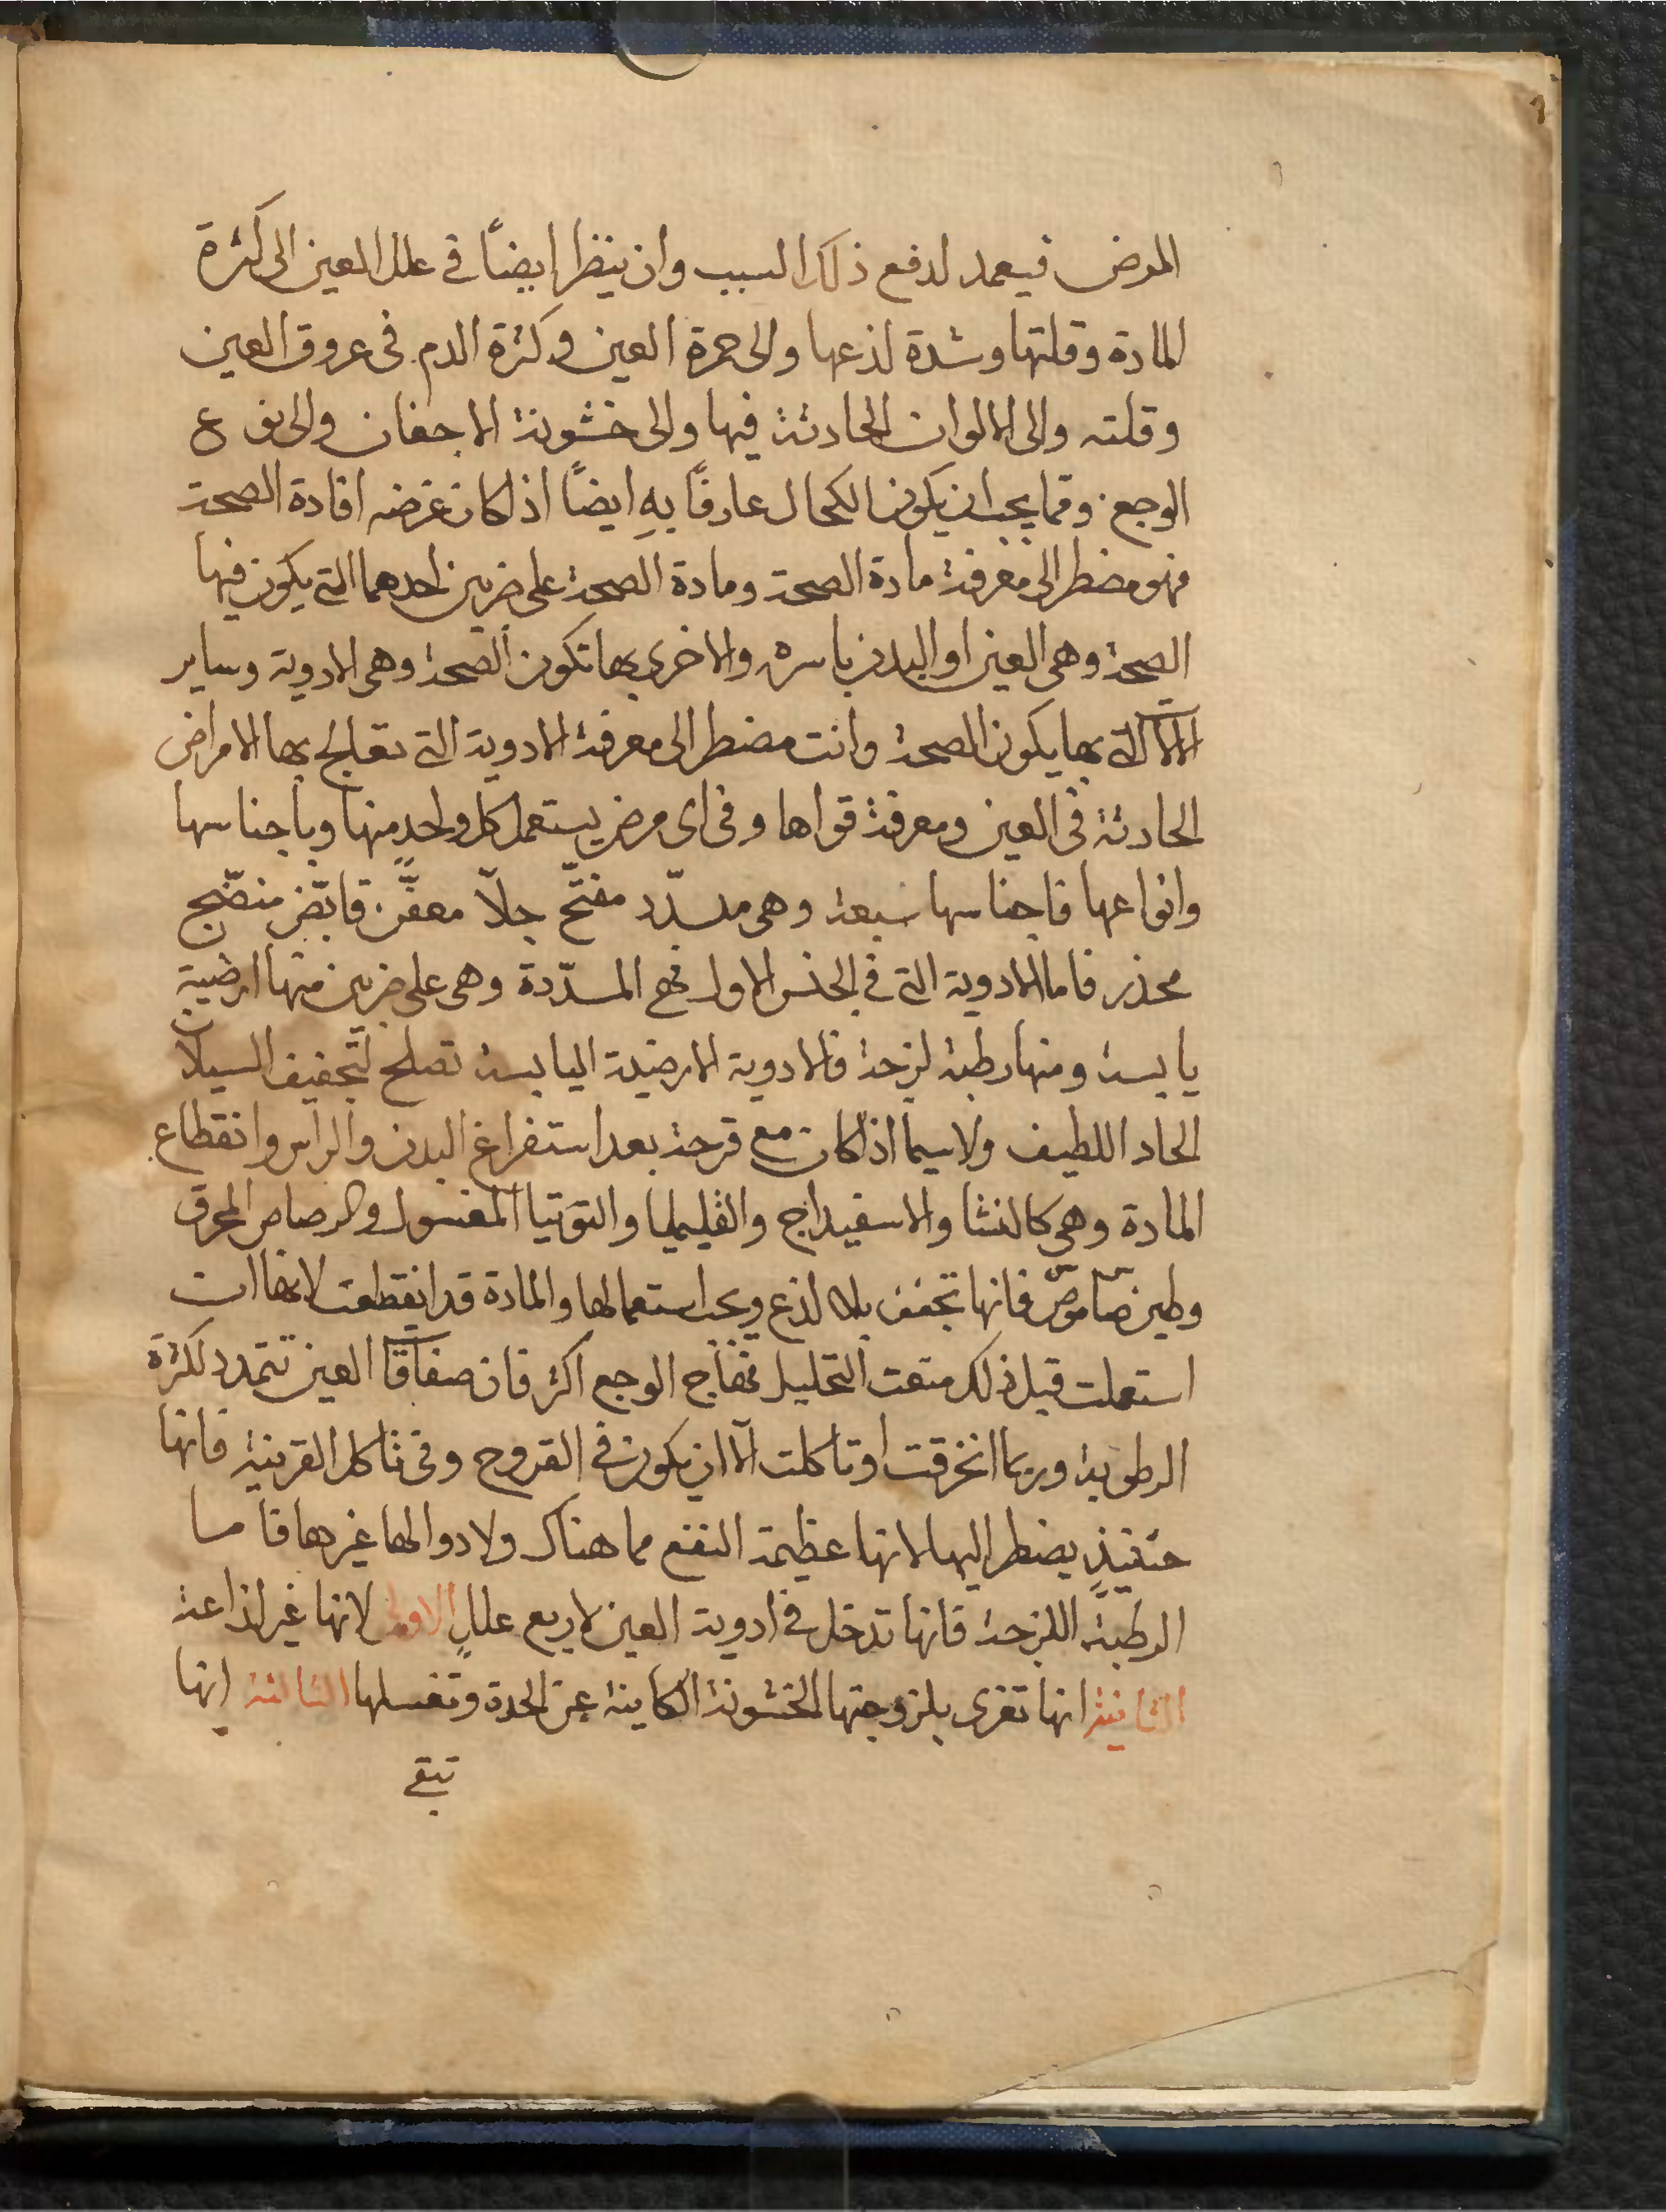 المرض فيعمد لدفع ذلك السبب وان ينظر ايضاً في علل العين الى كثرة
المادة وقلتها وشدة لذعها والى حمرة العين وكثرة الدم فى عروق العين
وقلته والى الالوان الحادثة فيها والى خشونة الاجفان والى نوع
الوجع ومما يجب ان يكون الكحال عارفاً بهِ ايضاً اذا كان غرضه افادة الصحة
فهو مضطر الى معرفة مادة الصحة ومادة الصحة على ضربين احدهما التي يكون فيها
الصحة وهى العين او البدن باسره والاخرى بها تكون الصحة وهى الادوية وساير
الآلات التي بها يكون الصحة وانت مضطر الى معرفة الادوية التي تعالج بها الامراض
الحادثة فى العين ومعرفة قواها وفى اى مرض يستعمل كل واحدٍ منها وباجناسها
وانواعها فاجناسها سبعة وهى مسدّد مفتّح جلاّ معفّن قابض منضّج
مخدر فاما الادوية التي في الجنس الاول فهى المسدّدة وهى على ضربين منها ارضية
يابسة ومنها رطبة لزجة فالادوية الارضية اليابسة تصلح لتجفيف السيلان
الحاد اللطيف ولاسيما اذا كان مع قرحة بعد استفراغ البدن والراس وانقطاع
المادة وهى كالنشا والاسفيداج والقليميا والتوتيا المغسول والرصاص المحرق
وطين صاموص فانها تجفف بلا لذع ويجب استعمالها والمادة قد انقطعت لانها ان
استعملت قبل ذلك منعت التحليل فهاج الوجع اكثر فان صفاقات العين تتمدد لكثرة
الرطوبة وربما انخرقت او تاكلت الّا ان يكون في القروح وفى تاكل القرنية فانها
حينئذٍ يضطر اليها لانها عظيمة النفع مما هناك ولا دوا لها غيرها فاما
الرطبة اللزجة فانها تدخل في ادوية العين لاربع عللٍ الاولى لانها غير لذاعة
الثانية انها تغرى بلزوجتها الخشونة الكاينة عن الحدة وتغسلها الثالثة انها
تبقى